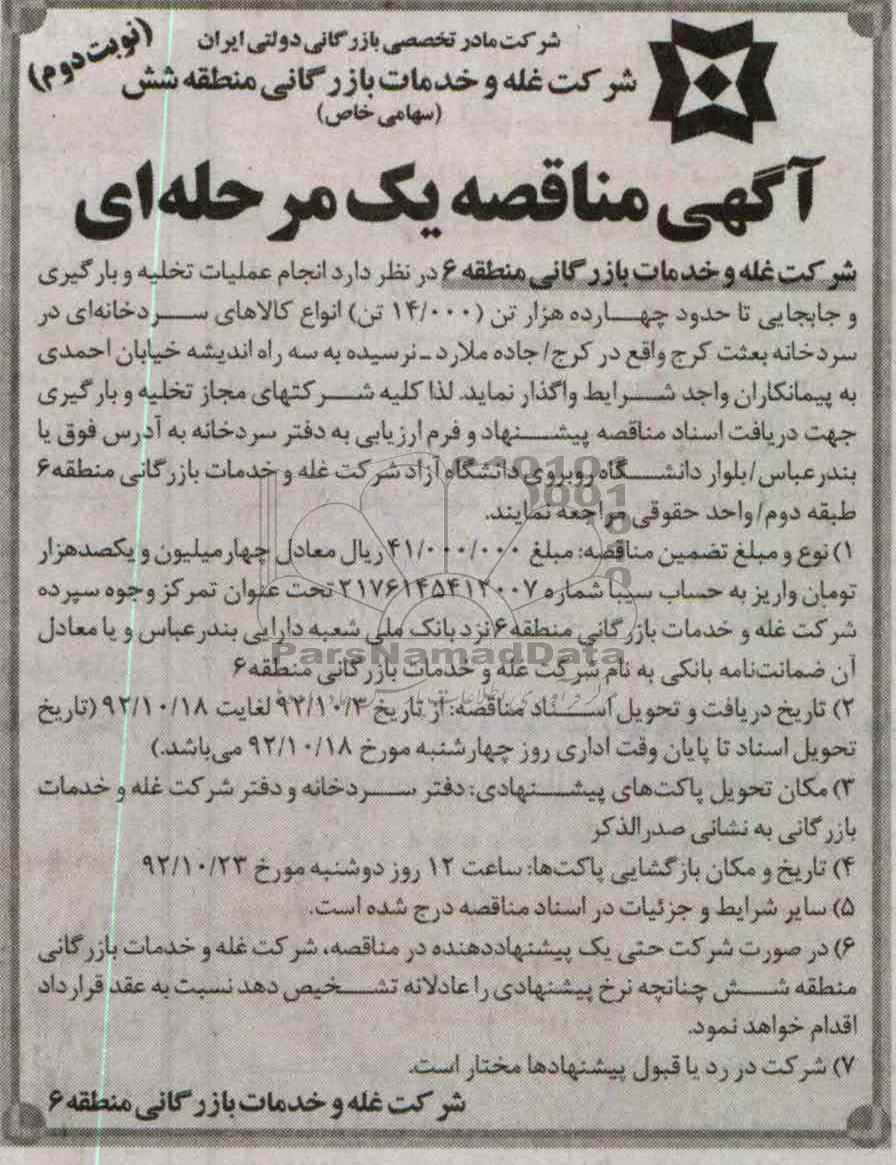 (نوبت دوم)
شرکت مادر تخصصی بازرگانی دولتی ایران
شرکت غله و خدمات بازرگانی منطقه شش
(سهامی خاص)
آگهی مناقصه یک مرحله‌ای
شرکت غله و خدمات بازرگانی منطقه ۶ در نظر دارد انجام عملیات تخلیه و بارگیری
و جابجایی تا حدود چهارده هزار تن (۱۴/۰۰۰ تن) انواع کالاهای سردخانه‌ای در
سردخانه بعثت کرج واقع در کرج/ جاده ملارد - نرسیده به سه راه اندیشه خیابان احمدی
به پیمانکاران واجد شرایط واگذار نماید. لذا کلیه شرکتهای مجاز تخلیه و بارگیری
جهت دریافت اسناد مناقصه پیشنهاد و فرم ارزیابی به دفتر سردخانه به آدرس فوق یا
بندرعباس/بلوار دانشگاه روبروی دانشگاه آزاد شرکت غله و خدمات بازرگانی منطقه ۶
طبقه دوم/واحد حقوقی مراجعه نمایند.
۱) نوع و مبلغ تضمین مناقصه: مبلغ ۴۱/۰۰۰/۰۰۰ ریال معادل چهار میلیون و یکصدهزار
تومان واریز به حساب سیبا شماره ۲۱۷۶۱۴۵۴۱۲۰۰۷ تحت عنوان تمرکز وجوه سپرده
شرکت غله و خدمات بازرگانی منطقه ۶ نزد بانک ملی شعبه دارایی بندرعباس و یا معادل
آن ضمانت‌نامه بانکی به نام شرکت غله و خدمات بازرگانی منطقه ۶
ParsNamadData
۲) تاریخ دریافت و تحویل اسناد مناقصه: از تاریخ ۹۲/۱۰/۳ لغایت ۹۲/۱۰/۱۸ (تاریخ
تحویل اسناد تا پایان وقت اداری روز چهارشنبه مورخ ۹۲/۱۰/۱۸ می‌باشد.)
۳) مکان تحویل پاکت‌های پیشنهادی: دفتر سردخانه و دفتر شرکت غله و خدمات
بازرگانی به نشانی صدرالذکر
۴) تاریخ و مکان بازگشایی پاکت‌ها: ساعت ۱۲ روز دوشنبه مورخ ۹۲/۱۰/۲۳
۵) سایر شرایط و جزئیات در اسناد مناقصه درج شده است.
۶) در صورت شرکت حتی یک پیشنهاددهنده در مناقصه، شرکت غله و خدمات بازرگانی
منطقه شش چنانچه نرخ پیشنهادی را عادلانه تشخیص دهد نسبت به عقد قرارداد
اقدام خواهد نمود.
۷) شرکت در رد یا قبول پیشنهادها مختار است.
شرکت غله و خدمات بازرگانی منطقه ۶